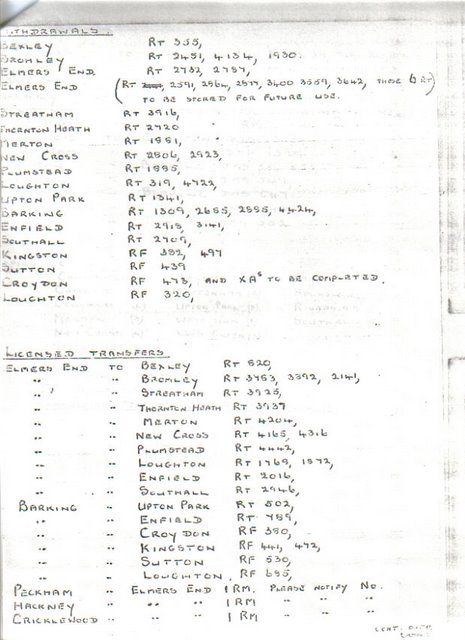 WITHDRAWALS.
BEXLEY RT 355,
BROMLEY RT 2451, 4134, 1930.
ELMERS END. RT 2732, 2757,
ELMERS END (RT 2591, 2564, 2577, 3400 3559, 3642, THESE 6 RT)
TO BE STORED FOR FUTURE USE.
STREATHAM RT 3916,
THORNTON HEATH RT 2720
MERTON RT 1881,
NEW CROSS RT 2506, 2923,
PLUMSTEAD RT 1885,
LOUGHTON RT 319, 4722,
UPTON PARK RT 1341,
BARKING RT 1309, 2655, 2885, 4424,
ENFIELD RT 2918, 3141,
SOUTHALL RT 2709,
KINGSTON RF 382, 497
SUTTON RF 439
CROYDON RF 478, AND XAs TO BE COMPLETED.
LOUGHTON RF 320,
LICENSED TRANSFERS
ELMERS END TO BEXLEY RT 520,
" " BROMLEY RT 3753, 3392, 2141,
" " STREATHAM RT 3925,
" " THORNTON HEATH RT 3939
" " MERTON RT 4204,
" " NEW CROSS RT 4165, 4316
" " PLUMSTEAD RT 4442,
" " LOUGHTON RT 1769, 1872,
" " ENFIELD RT 2016,
" " SOUTHALL RT 2946,
BARKING " UPTON PARK RT 502,
" " ENFIELD RT 789,
" " CROYDON RF 380,
" " KINGSTON RF 441, 472,
" " SUTTON RF 530,
" " LOUGHTON. RF 695,
PECKHAM " ELMERS END 1 RM. PLEASE NOTIFY No.
HACKNEY " " " 1 RM " " "
CRICKLEWOOD " " " 1 RM " " "
CONT. OVER